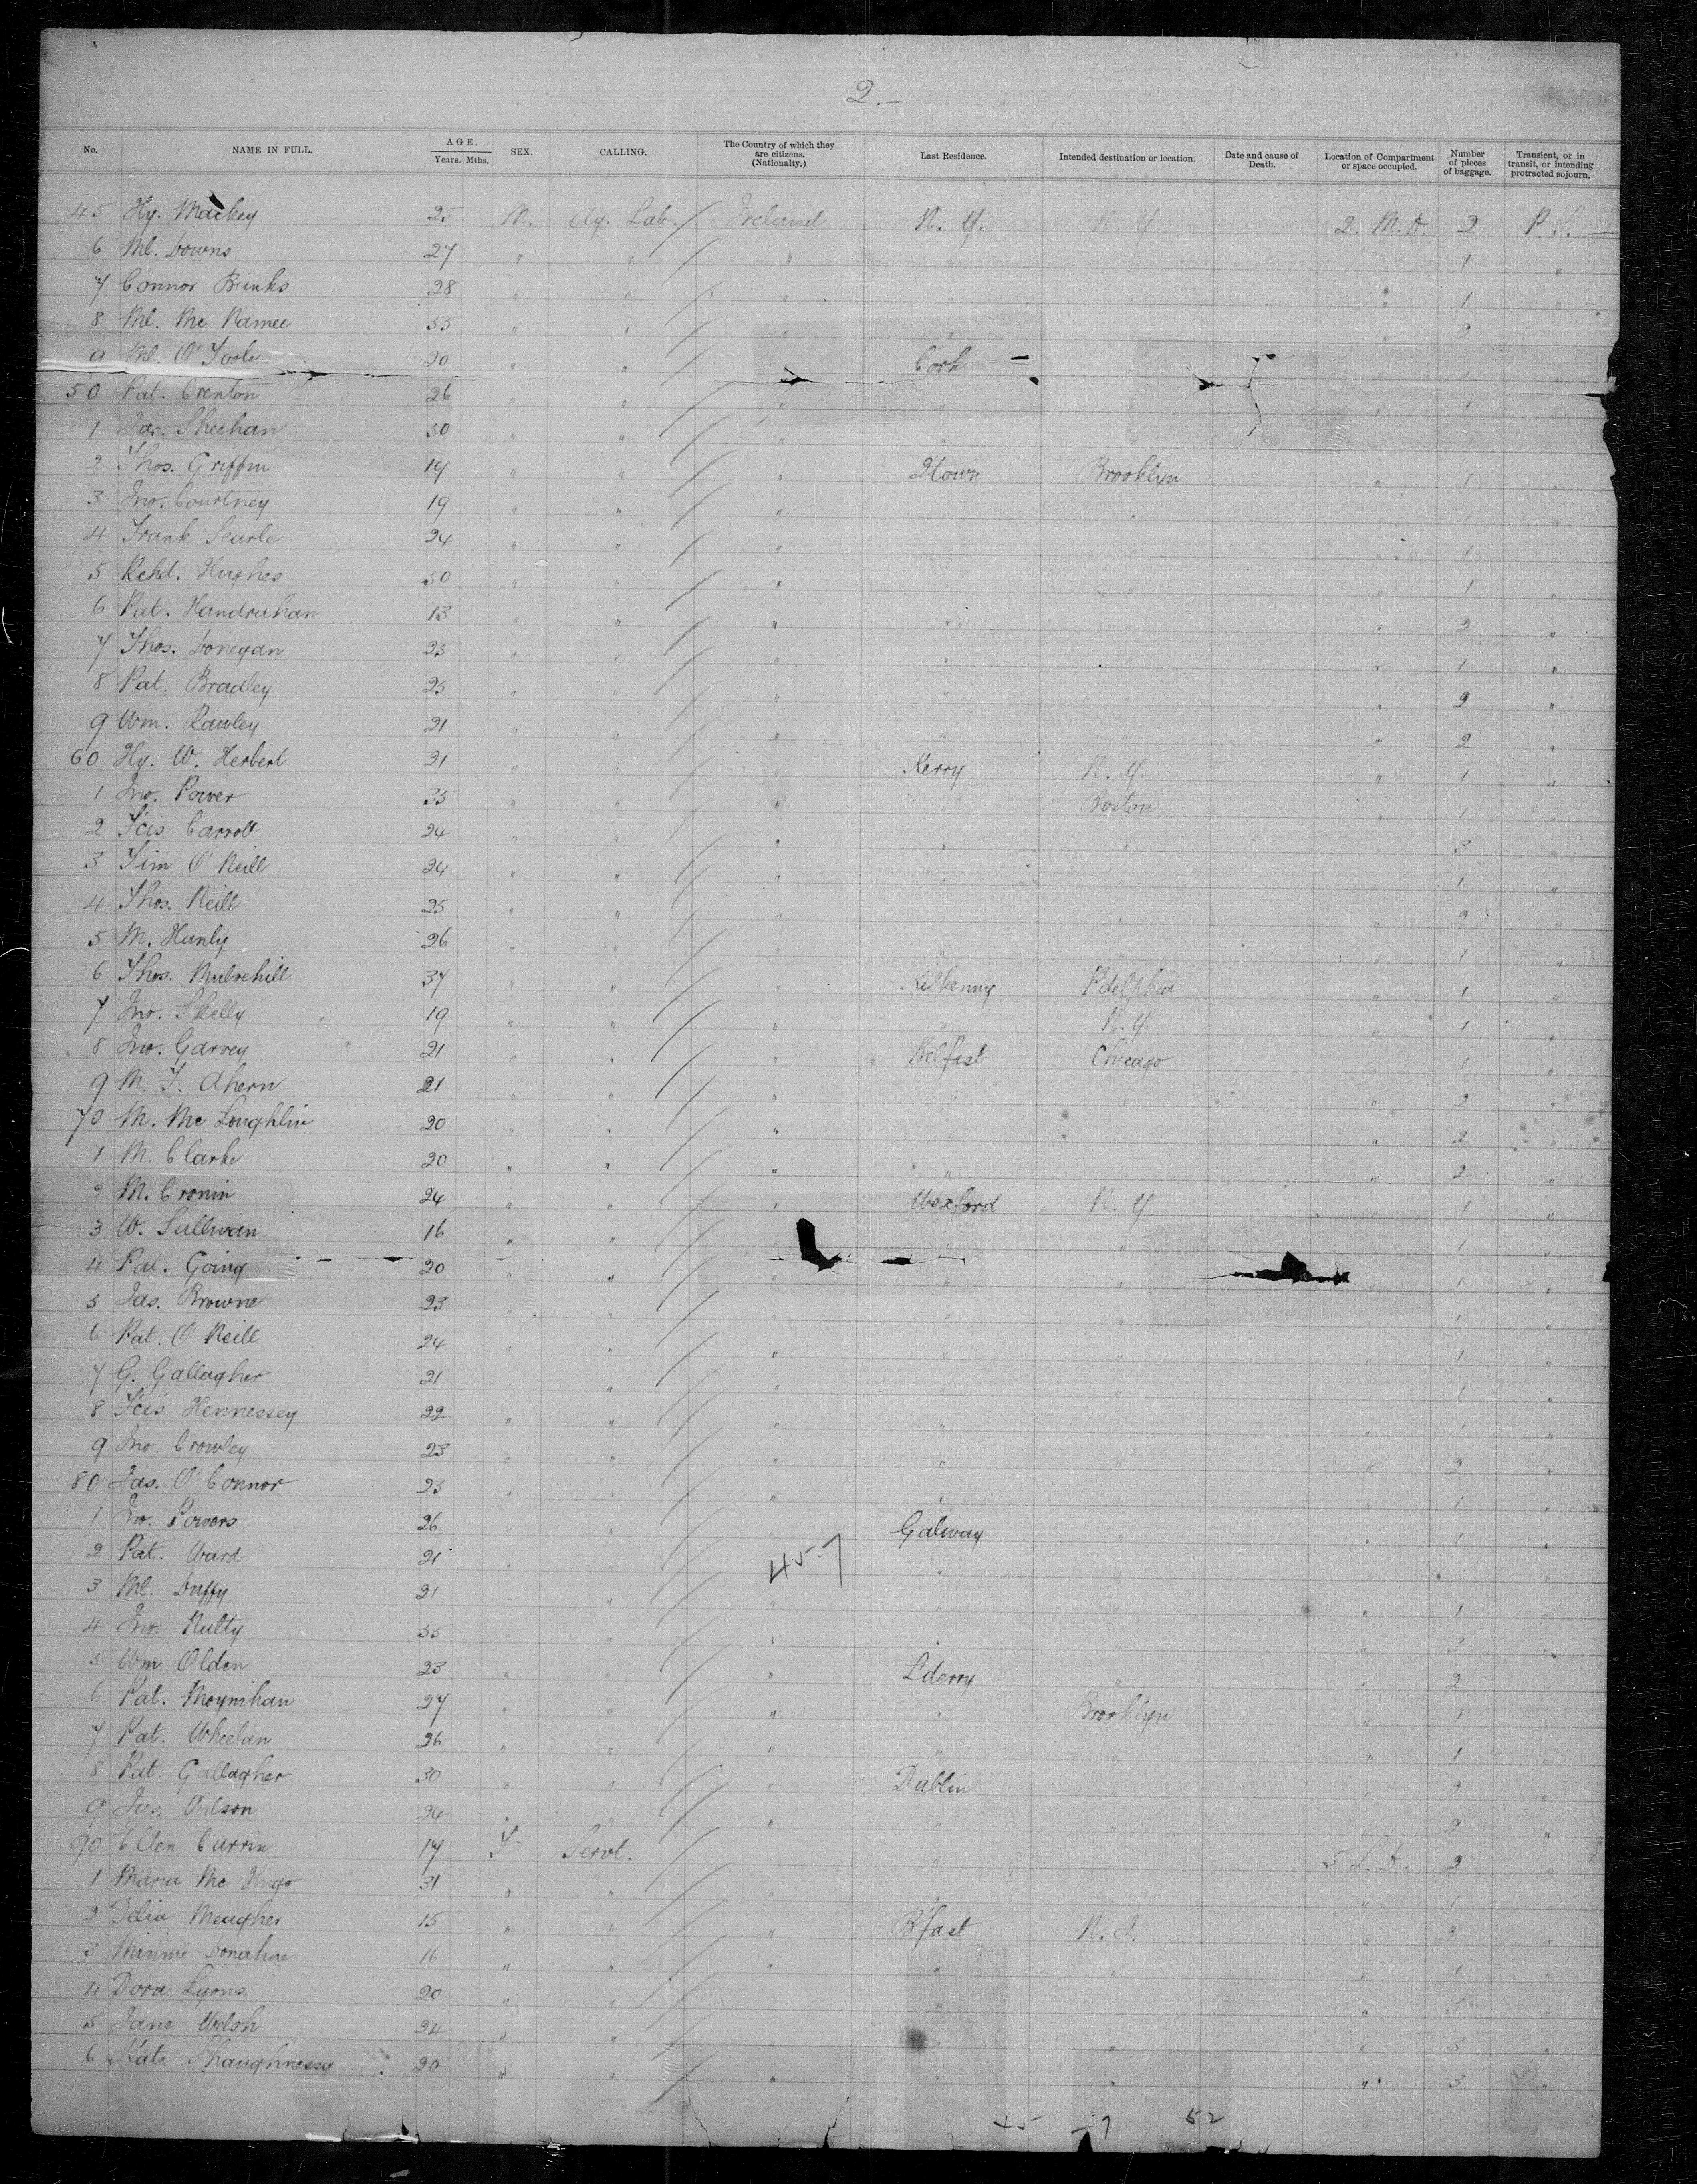 2.-
No. NAME IN FULL. AGE. Years. Mths. SEX. CALLING. The Country of which they are citizens. (Nationality.) Last Residence. Intended destination or location. Date and cause of Death. Location of Compartment or space occupied. Number of pieces of baggage. Transient, or in transit, or intending protracted sojourn.
45 Hy. Mackey 25 M. Ag. Lab. / Ireland N. Y. N. Y 2. M. D. 2 P. S.
6 Ml. Downs 27 " " / " " 1 "
7 Connor 28 " " / " " 1 "
8 Ml. Mc Namee " " / " " 2 "
9 Ml. O'Toole 20 " " / " Cork 1 "
50 Pat. Crenton 26 " " / " " " 1 "
1 Jas. Sheehan 30 " " / " " " 1 "
2 Thos. Griffin 19 " " / " Qtown Brooklyn " 1 "
3 Jno. Courtney 19 " " / " " " 1 "
4 Frank Searle 24 " " / " " " 1 "
5 Rchd. Hughes 50 " " / " " " 1 "
6 Pat. Handrahan 13 " " / " " " 2 "
7 Thos. Donegan 23 " " / " " " " 1 "
8 Pat. Bradley 25 " " / " " " " 2 "
9 Wm. Rawley 21 " " / " " " " 2 "
60 Hy. W. Herbert 21 " " / " Kerry N. Y. " 1 "
1 Jno. Power 35 " " / " " Boston " 1 "
2 Fcis Carroll 24 " " / " " " " 3 "
3 Tim O'Neill 24 " " / " " " " 1 "
4 Thos. Neill 25 " " / " " " " 2 "
5 M. Hanly 26 " " / " " " " 1 "
6 Thos. Mulvehill 37 " " / " Kilkenny Pdelphia " 1 "
7 Jno. Skelly 19 " " / " " N. Y. " 1 "
8 Jno. Garvey 21 " " / " Belfast Chicago " 1 "
9 M. F. Ahern 21 " " / " " " " 2 "
70 M. Mc Loughlin 20 " " / " " " " 2 "
1 M. Clarke 20 " " / " " " 2 "
2 M. Cronin 24 " " / " Wexford N. Y " 1 "
3 W. Sullivan 16 " " / " " " 1 "
4 Pat. Going 20 " " / " " " " 1 "
5 Jas. Browne 23 " " / " " " 1 "
6 Pat. O'Neill 24 " " / " " " " 1 "
7 G. Gallagher 21 " " / " " " 1 "
8 Fcis Hennessey 22 " " / " " " " 1 "
9 Jno. Crowley 23 " " / " " " " 2 "
80 Jas. O'Connor 23 " " / " " 1 "
1 Jno. Powers 26 " " / " Galway " " 1 "
2 Pat. Ward 21 " " / 45.7 " " " 1 "
3 Ml. Duffy 21 " " / " " " " 1 "
4 Jno. Nulty " " / " " " " 3 "
5 Wm Olden 23 " " / " L'derry " " 2 "
6 Pat. Moynihan 27 " " / " " Brooklyn " 1 "
7 Pat. Wheelan 26 " " / " " " " 1 "
8 Pat. Gallagher 30 " " / " Dublin " " 2 "
9 Jas. Wilson 24 " " / " " " " 2 "
90 Ellen Currin 17 F Servt. / " " " 5 L. D. 2 "
1 Maria Mc Hugo 31 " " / " " " 1 "
2 Delia Meagher 15 " " / " B'fast N. J. " 2 "
3 Minnie Donahoe 16 " " / " " " " 1 "
4 Dora Lyons 20 " " / " " " 3 "
5 Jane Walsh 24 " " / " " " " 3 "
6 Kate Shaughnessy 20 " " / " " " " 3 "
45 7 52